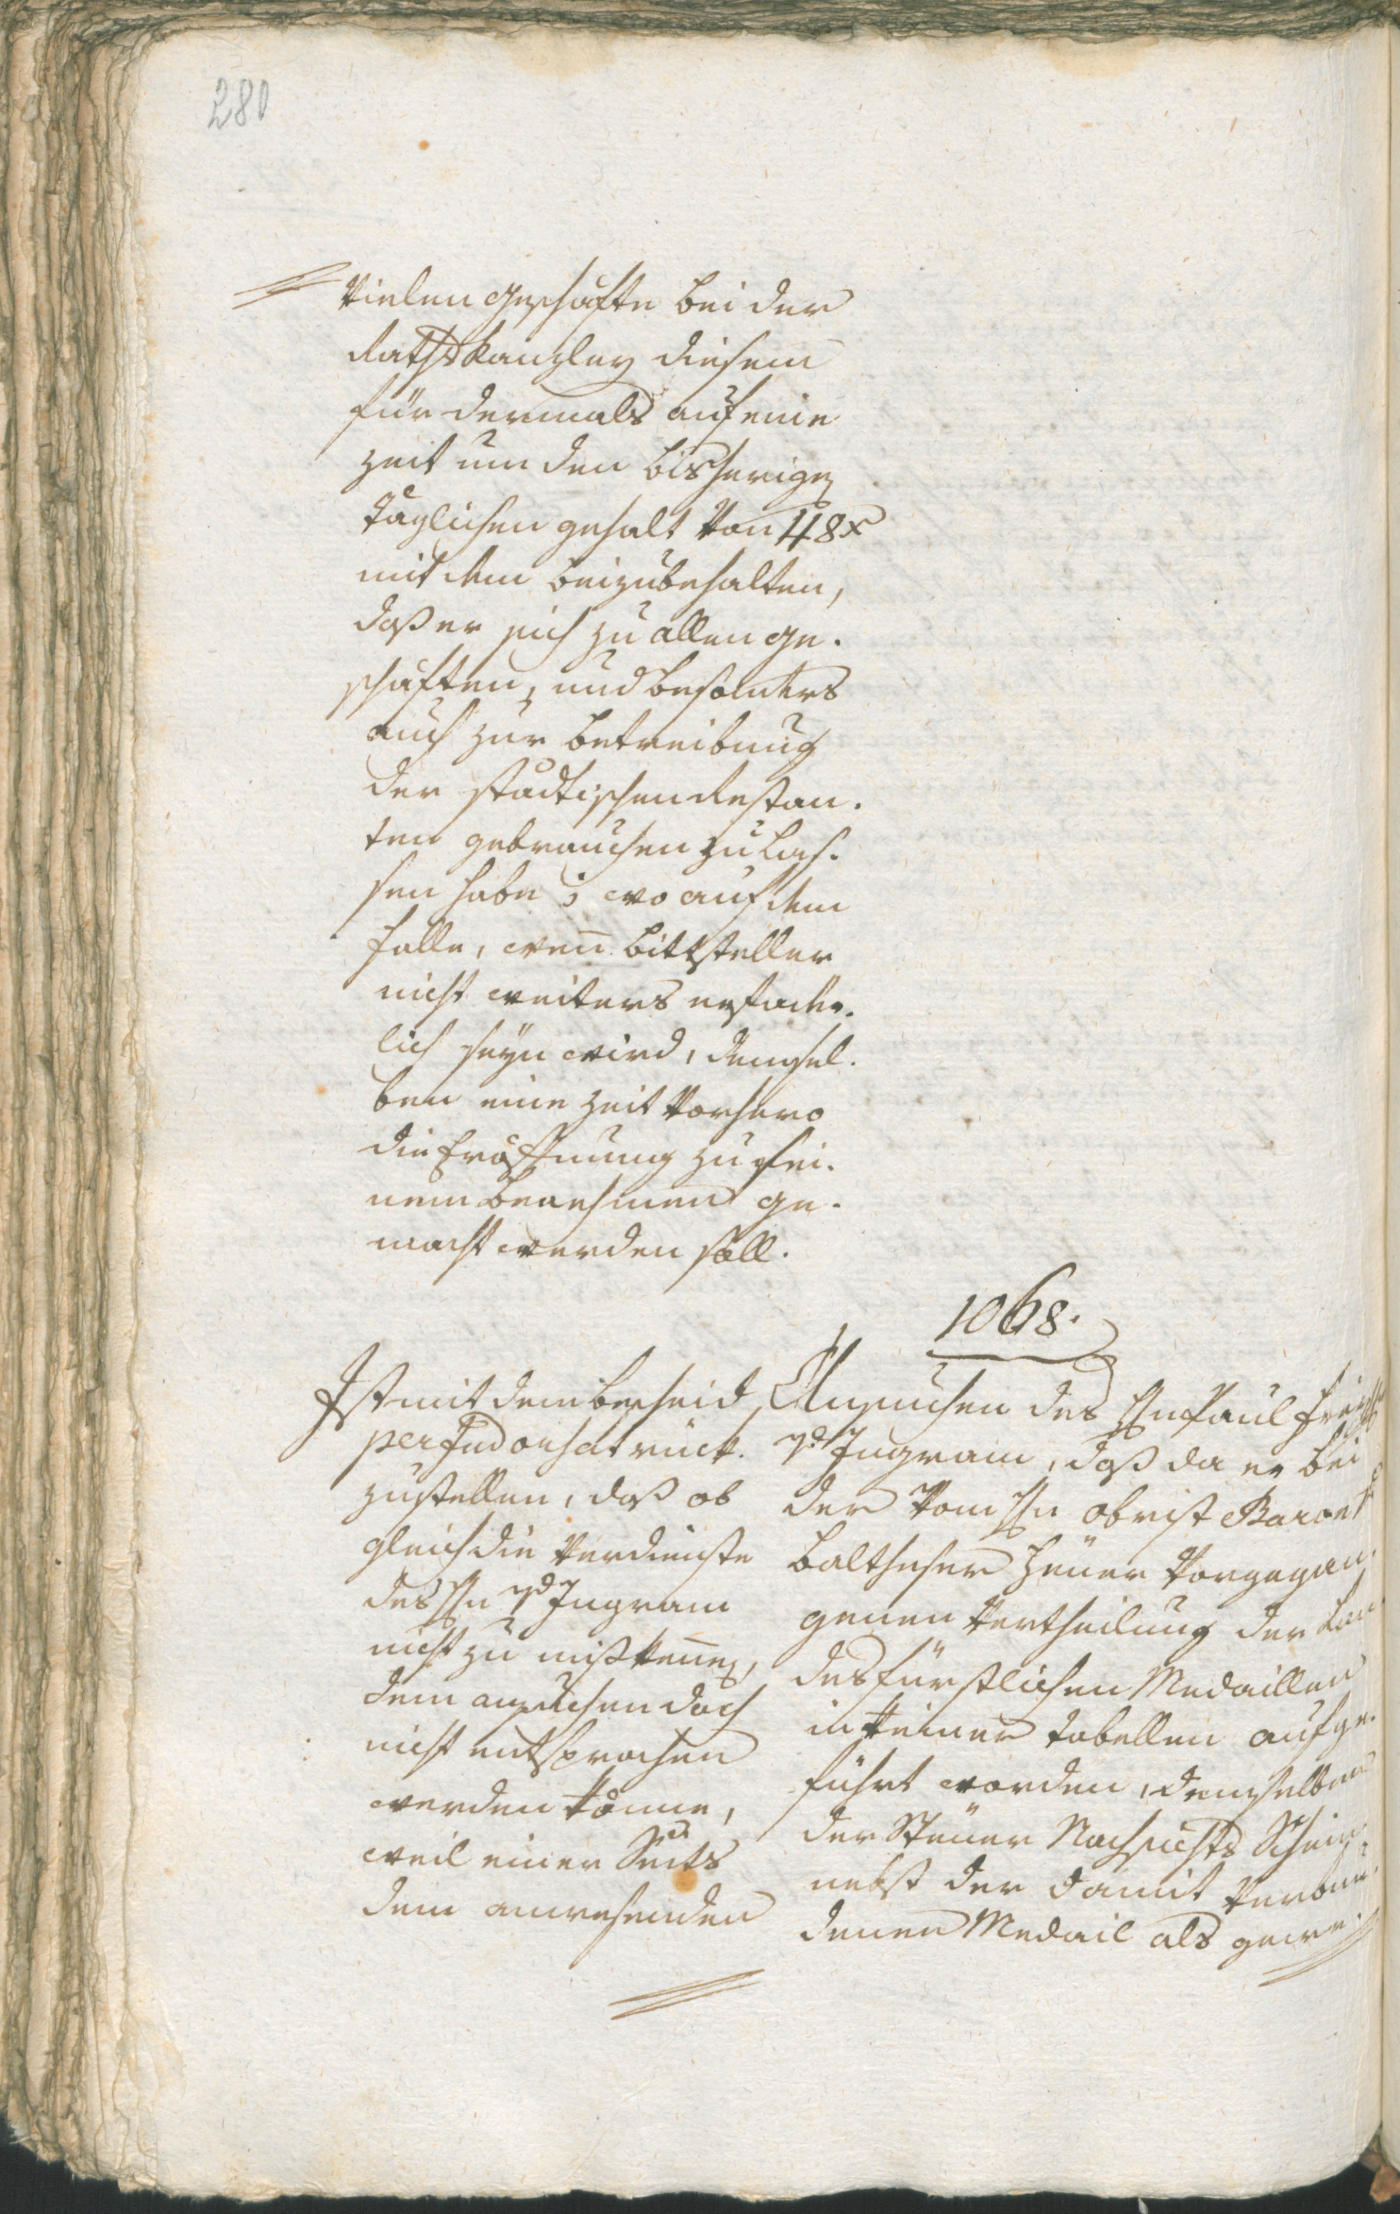 280
vielen geschäfte bei der
Rathskanzley diesem
für dermals auf eine
zeit um den bisherigen
täglichen gehalt von 48x
mit dem beizubehalten,
daß er sich zu allen ge.
schäften, und besonders
auch zur betreibung
der städtischen Restan.
ten gebrauchen zu las.
sen habe; wo auf dem
falle, wenn bittsteller
nicht weiters erforder.
lich seyn wird, demsel.
ben eine zeit vorhero
die Eröffnung zu sei.
nem benehmen ge.
macht werden soll.
1068.
Ist mit dem bescheid
per Indorsat rück.
zustellen, daß ob
gleich die verdienste
des Hn v. Ingram
nicht zu mißkennen,
dem ansuchen doch
nicht entsprochen
werden könne,
weil einer Seits
dem anwesenden
Ansuchen des Hn Paul
v. Ingram, daß da er bei
der vom Hn obrist Baron
baltheser Heuer vorgegan.
genen vertheilung der Lan
desfürstlichen Medaillen
in keiner tabellen aufge.
führt worden, demselben
der Steuer Nachsichts Schein
nebst der damit verbun
denen Medail als